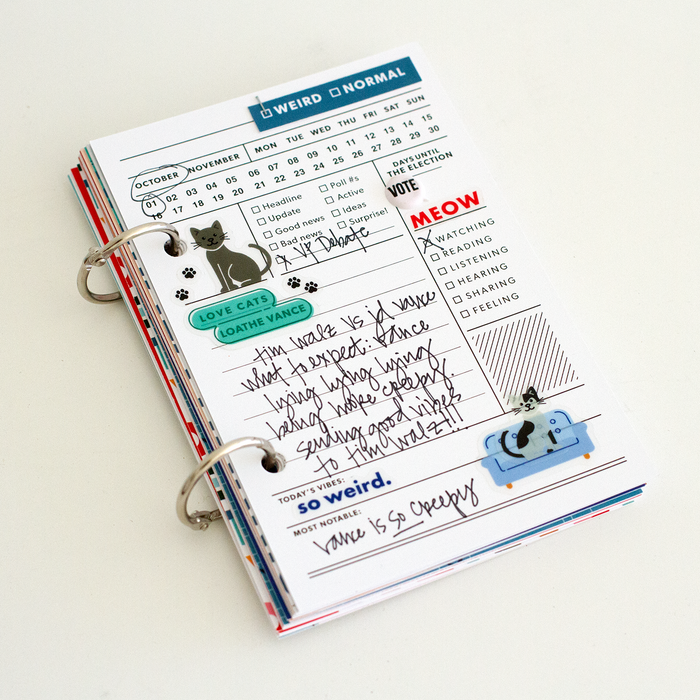 WEIRD NORMAL
MON TUE WED THU FRI SAT SUN
OCTOBER NOVEMBER
01 02 03 04 05 06 07 08 09 10 11 12 13 14 15
16 17 18 19 20 21 22 23 24 25 26 27 28 29 30
Headline
Update
Good news
Bad news
Poll #s
Active
Ideas
Surprise!
x VP Debate
DAYS UNTIL
THE ELECTION
VOTE
MEOW
x WATCHING
READING
LISTENING
HEARING
SHARING
FEELING
LOVE CATS
LOATHE VANCE
tim walz vs jd vance
what to expect: vance
lying lying lying
being more creepy.
sending good vibes
to tim walz!!!
TODAY'S VIBES:
so weird.
MOST NOTABLE:
vance is so creepy